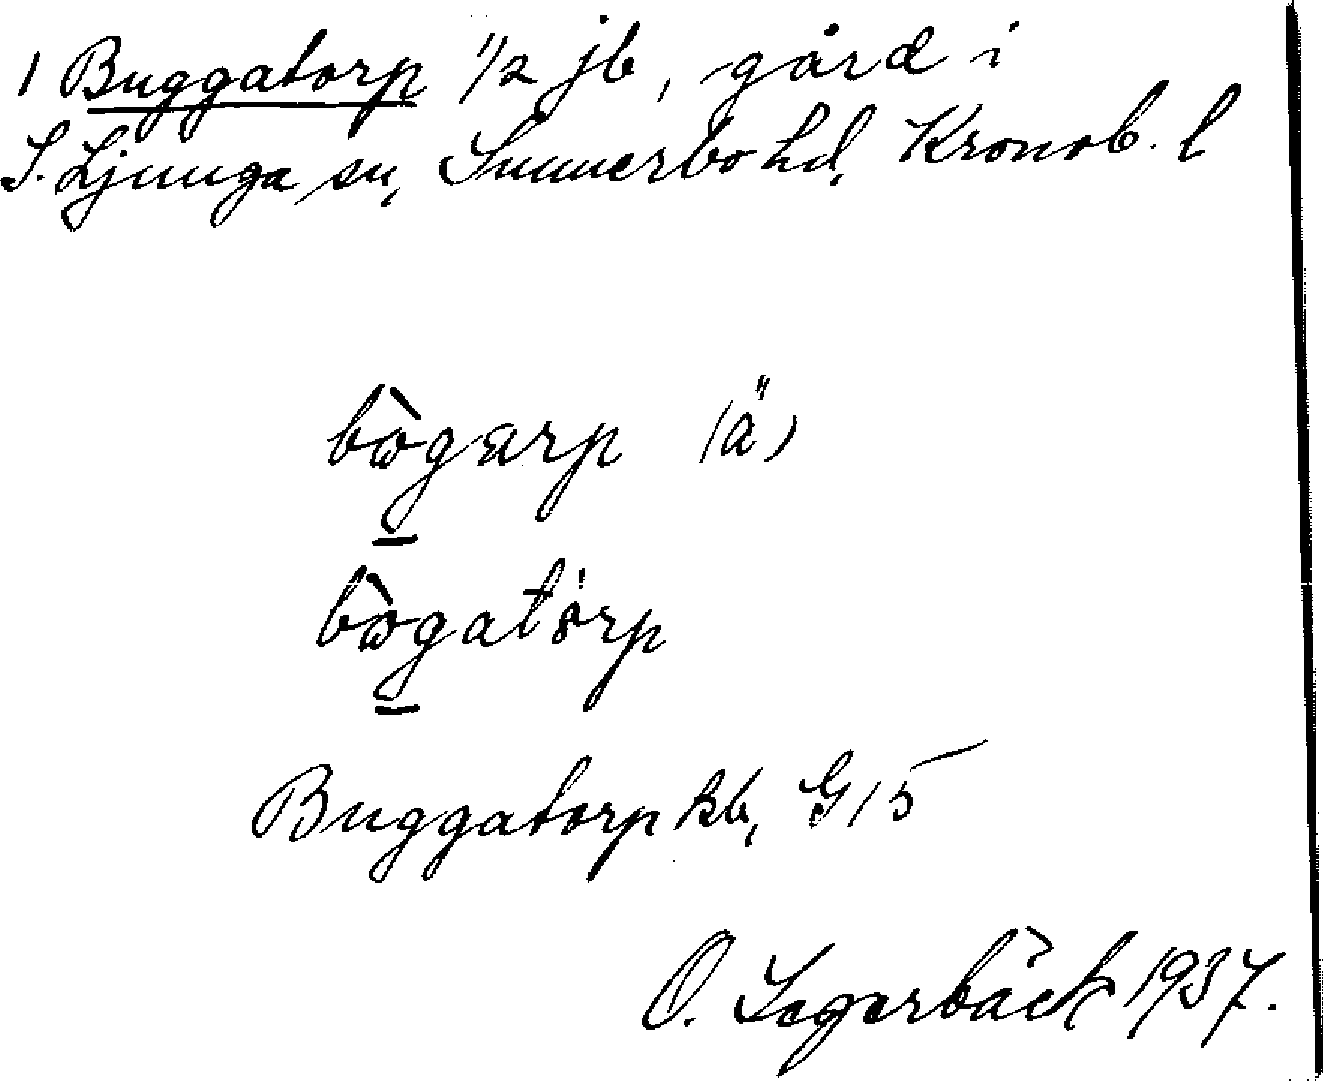 1 Buggatorp 1/2 jb, gård i
S. Ljunga sn, Sunnerbo hd, Kronob. l
bò̱garp (ä)
bò̱gatórp
Buggatorp kb, G15
O. Segerbäck 1937.